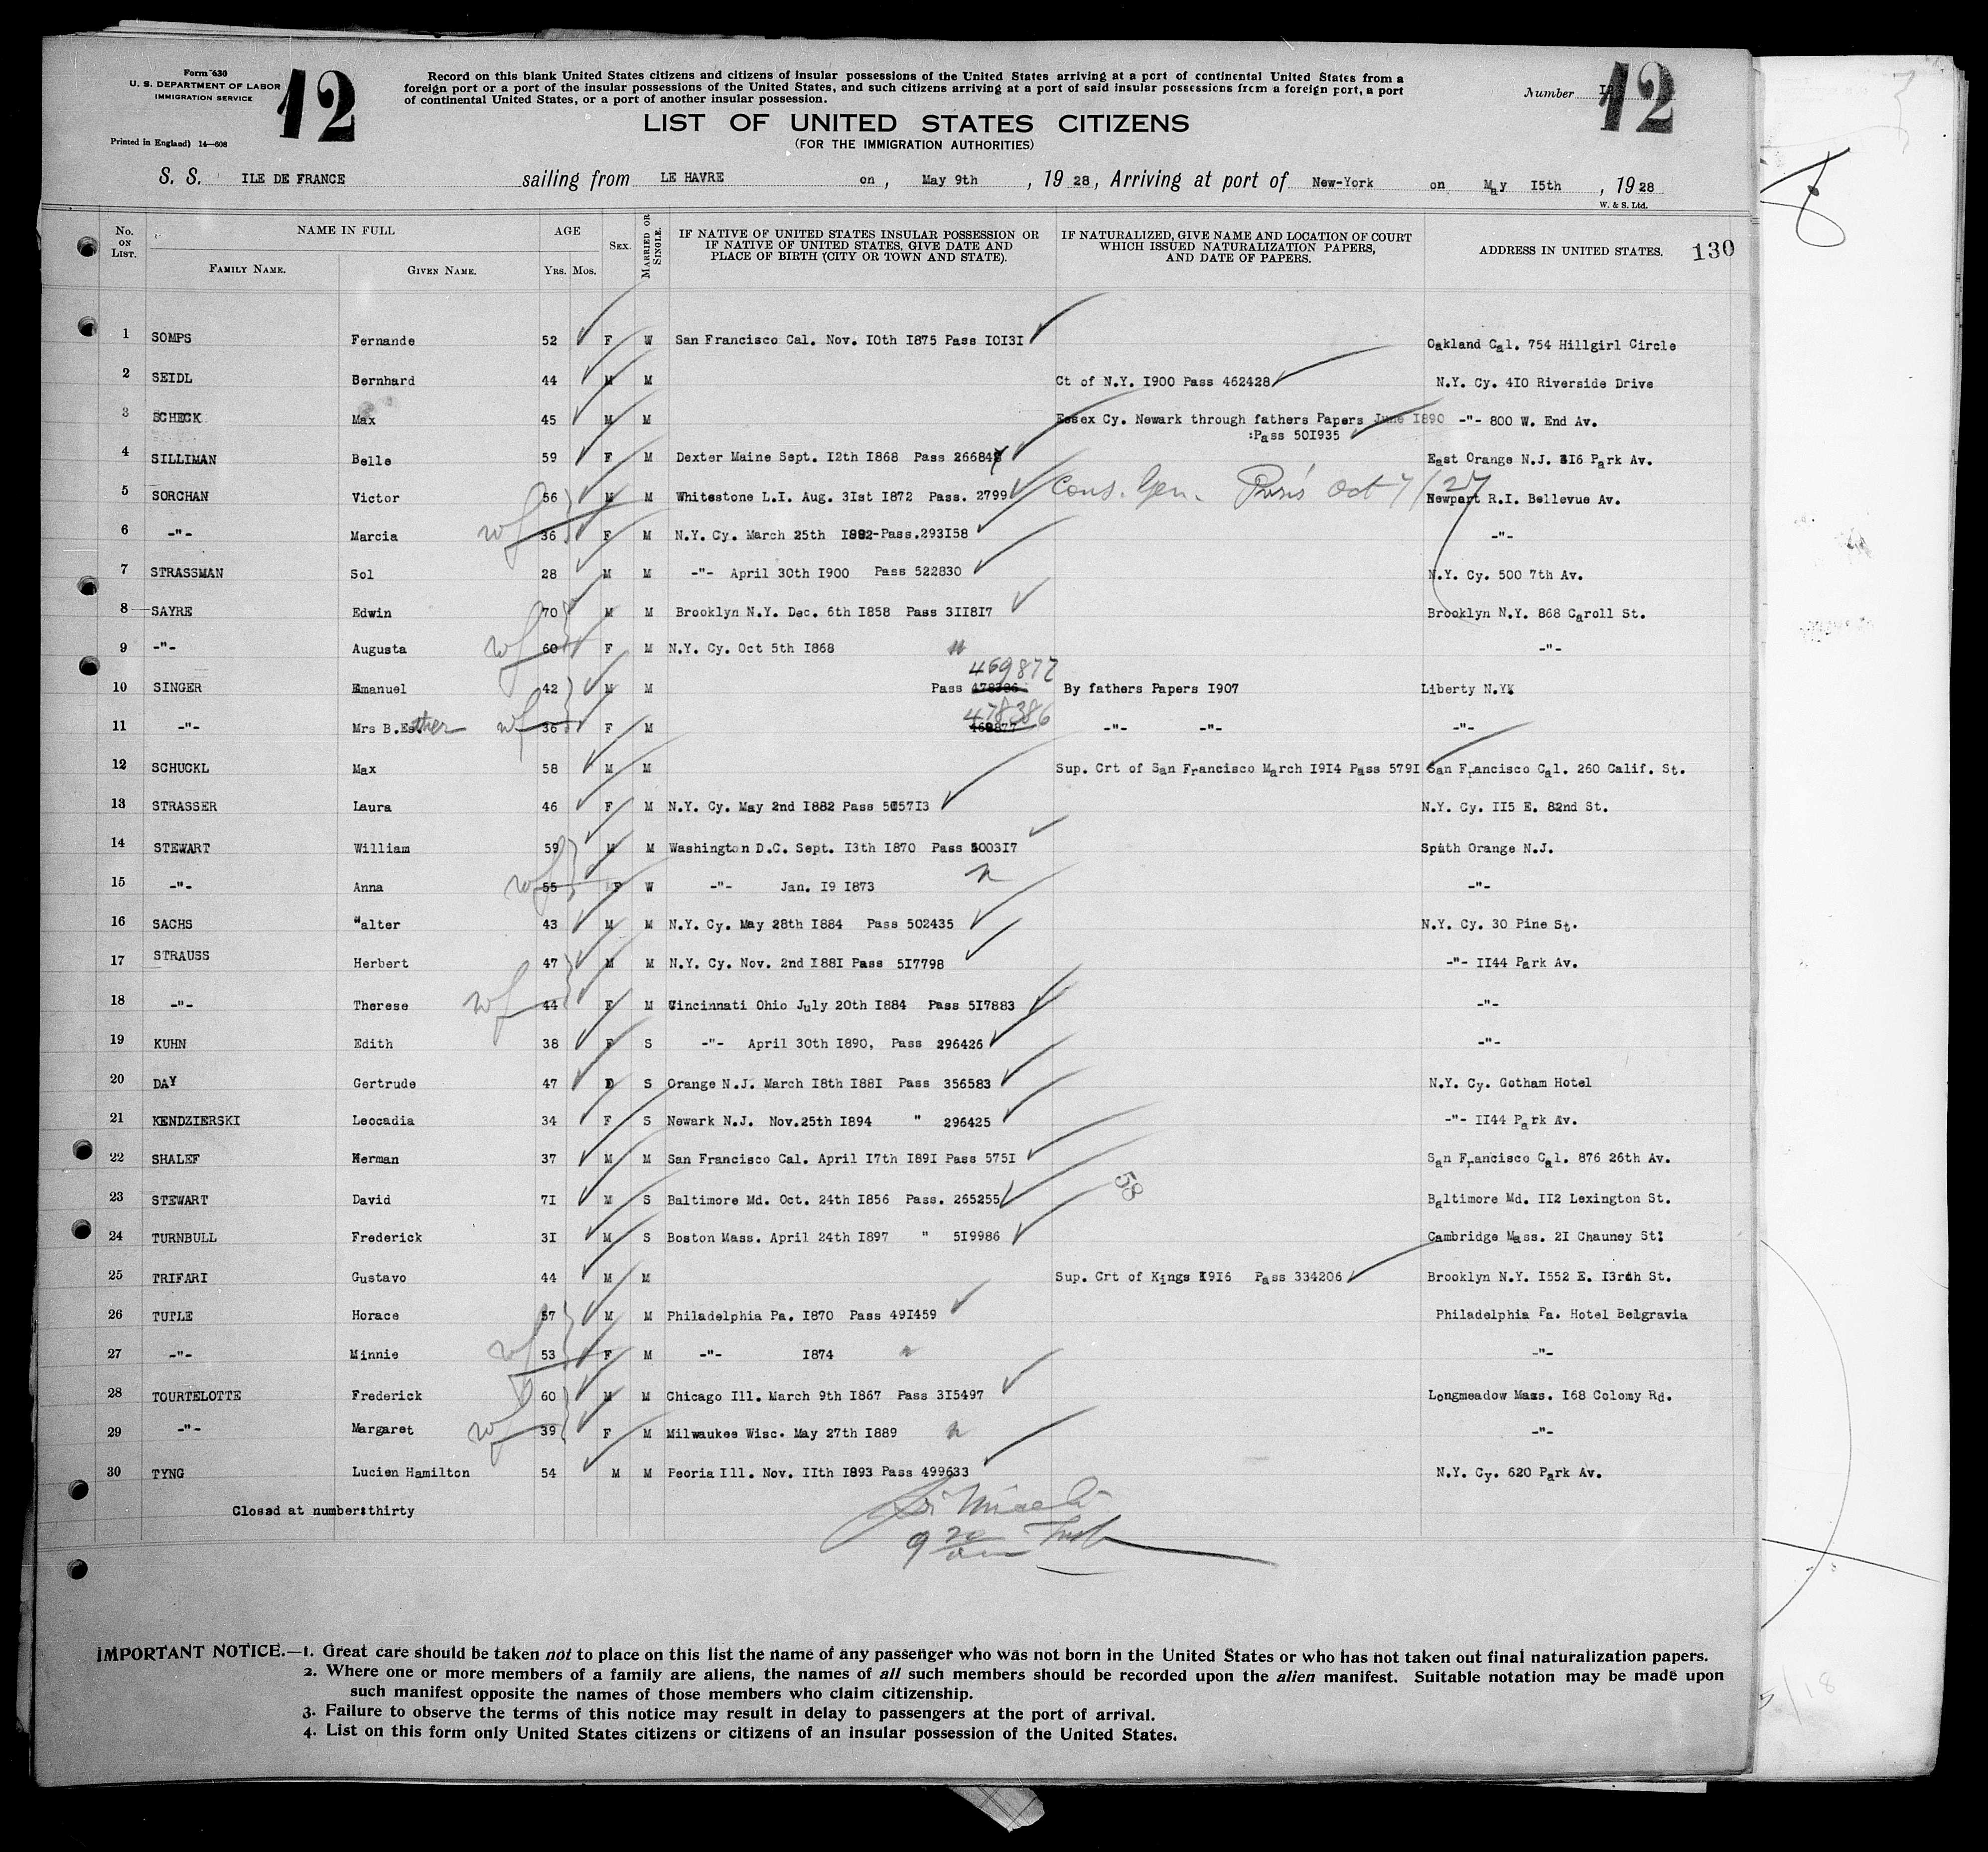 Form 630
U. S. DEPARTMENT OF LABOR
IMMIGRATION SERVICE
12
Printed in England) 14—608
Record on this blank United States citizens and citizens of insular possessions of the United States arriving at a port of continental United States from a
foreign port or a port of the insular possessions of the United States, and such citizens arriving at a port of said insular possessions from a foreign port, a port
of continental United States, or a port of another insular possession.
Number 12
LIST OF UNITED STATES CITIZENS
(FOR THE IMMIGRATION AUTHORITIES)
S. S. ILE DE FRANCE sailing from LE HAVRE on , May 9th , 19 28, Arriving at port of New-York on May I5th , 19 28
W. & S. Ltd.
No. on List. NAME IN FULL AGE Sex. Married or Single. IF NATIVE OF UNITED STATES INSULAR POSSESSION OR IF NATIVE OF UNITED STATES, GIVE DATE AND PLACE OF BIRTH (CITY OR TOWN AND STATE). IF NATURALIZED, GIVE NAME AND LOCATION OF COURT WHICH ISSUED NATURALIZATION PAPERS, AND DATE OF PAPERS. ADDRESS IN UNITED STATES. 130
Family Name. Given Name. Yrs. Mos.
1 SOMPS Fernande 52 F W San Francisco Cal. Nov. I0th I875 Pass I0I3I Oakland Cal. 754 Hillgirl Circle
2 SEIDL Bernhard 44 M M Ct of N.Y. I900 Pass 462428 N.Y. Cy. 4I0 Riverside Drive
3 SCHECK Max 45 M M Essex Cy. Newark through fathers Papers June I890 -"- 800 W. End Av.
:Pass 50I935
4 SILLIMAN Belle 59 F M Dexter Maine Sept. I2th I868 Pass 26684 East Orange N.J. 3I6 Park Av.
5 SORCHAN Victor 56 M M Whitestone L.I. Aug. 3Ist I872 Pass. 2799 Cons. Gen. Paris Oct 7/27 Newport R.I. Bellevue Av.
6 -"- Marcia wf 36 F M N.Y. Cy. March 25th I892-Pass.293I58 -"-
7 STRASSMAN Sol 28 M M -"- April 30th I900 Pass 522830 N.Y. Cy. 500 7th Av.
8 SAYRE Edwin 70 M M Brooklyn N.Y. Dec. 6th I858 Pass 3II8I7 Brooklyn N.Y. 868 Caroll St.
9 -"- Augusta wf 60 F M N.Y. Cy. Oct 5th I868 " -"-
469877
10 SINGER Emanuel 42 M M Pass 478386 By fathers Papers I907 Liberty N.Y.
478386
11 -"- Mrs B.Esther wf 36 F M 469877 -"- -"- -"-
12 SCHUCKL Max 58 M M Sup. Crt of San Francisco March I9I4 Pass 579I San Francisco Cal. 260 Calif. St.
13 STRASSER Laura 46 F M N.Y. Cy. May 2nd I882 Pass 5057I3 N.Y. Cy. II5 E. 82nd St.
14 STEWART William 59 M M Washington D.C. Sept. I3th I870 Pass 5003I7 Spith Orange N.J.
15 -"- Anna wf 55 F W -"- Jan. I9 I873 " -"-
16 SACHS "alter 43 M M N.Y. Cy. May 28th I884 Pass 502435 N.Y. Cy. 30 Pine St.
17 STRAUSS Herbert 47 M M N.Y. Cy. Nov. 2nd I88I Pass 5I7798 -"- II44 Park Av.
18 -"- Therese wf 44 F M Cincinnati Ohio July 20th I884 Pass 5I7883 -"-
19 KUHN Edith 38 F S -"- April 30th I890, Pass 296426 -"-
20 DAY Gertrude 47 S Orange N.J. March I8th I88I Pass 356583 N.Y. Cy. Gotham Hotel
21 KENDZIERSKI Leocadia 34 F S Newark N.J. Nov.25th I894 " 296425 -"- II44 Park Av.
22 SHALEF Herman 37 M M San Francisco Cal. April I7th I89I Pass 575I San Francisco Cal. 876 26th Av.
58
23 STEWART David 7I M S Baltimore Md. Oct. 24th I856 Pass. 265255 Baltimore Md. II2 Lexington St.
24 TURNBULL Frederick 3I M S Boston Mass. April 24th I897 " 5I9986 Cambridge Mass. 2I Chauney St:
25 TRIFARI Gustavo 44 M M Sup. Crt of Kings I9I6 Pass 334206 Brooklyn N.Y. I552 E. I3th St.
26 TUPLE Horace 57 M M Philadelphia Pa. I870 Pass 49I459 Philadelphia Pa. Hotel Belgravia
27 -"- Minnie wf 53 F M -"- I874 " -"-
28 TOURTELOTTE Frederick 60 M M Chicago Ill. March 9th I867 Pass 3I5497 Longmeadow Mass. I68 Colomy Rd.
29 -"- Margaret wf 39 F M Milwaukee Wisc. May 27th I889 " -"-
30 TYNG Lucien Hamilton 54 M M Peoria Ill. Nov. IIth I893 Pass 499633 N.Y. Cy. 620 Park Av.
Closed at number:thirty
IMPORTANT NOTICE.—1. Great care should be taken not to place on this list the name of any passenger who was not born in the United States or who has not taken out final naturalization papers.
2. Where one or more members of a family are aliens, the names of all such members should be recorded upon the alien manifest. Suitable notation may be made upon
such manifest opposite the names of those members who claim citizenship.
3. Failure to observe the terms of this notice may result in delay to passengers at the port of arrival.
4. List on this form only United States citizens or citizens of an insular possession of the United States.